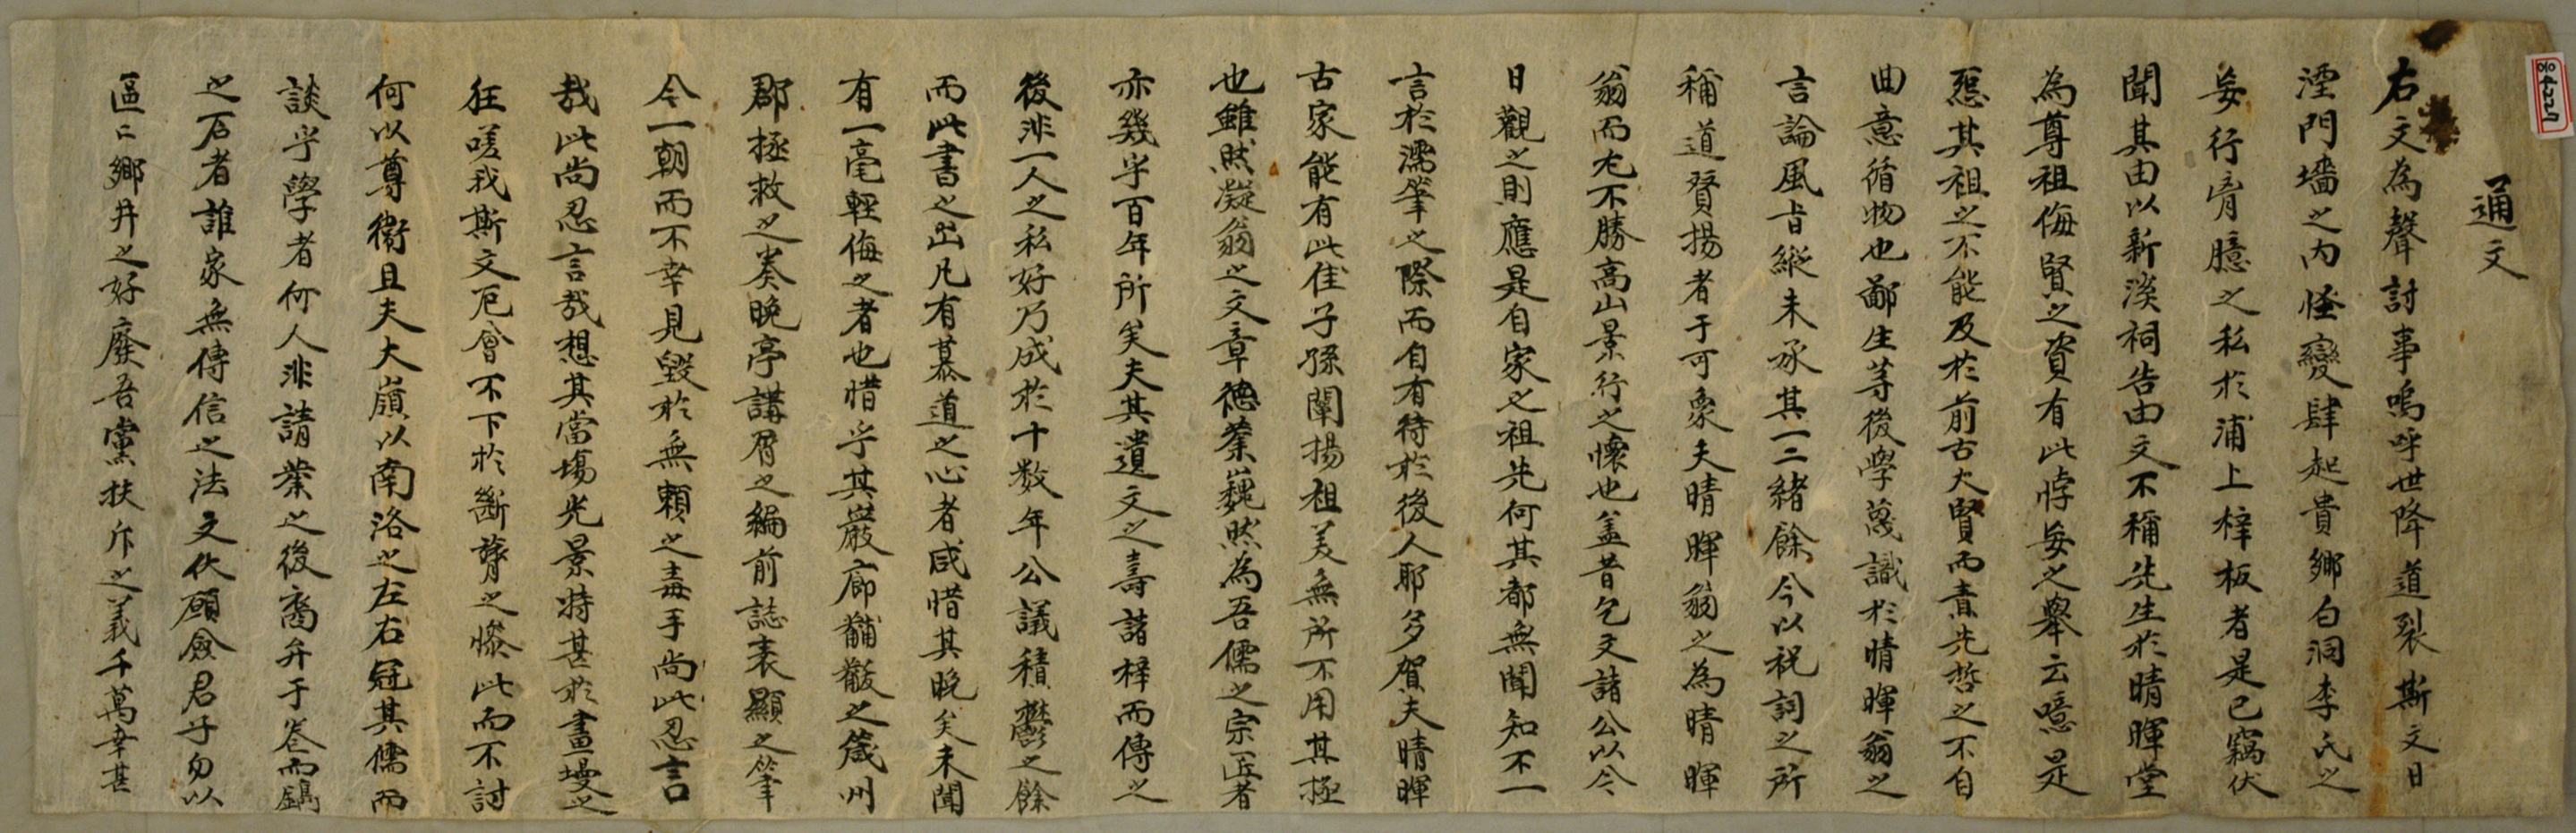 通文
右文為聲討事嗚呼世降道裂斯文日
湮門墻之內怪變肆起貴鄉白洞李氏之
妄行胷臆之私於浦上梓板者是已竊伏
聞其由以新淡祠告由文不稱先生於晴暉堂
為尊祖侮賢之資有此悖妄之擧云噫是
惡其祖之不能及於前古大賢而責先哲之不自
曲意循物也鄙生等後學蔑識於晴暉翁之
言論風旨縱未承其一二緖餘今以祝詞之所
稱道贊揚者于可象夫晴暉翁之為晴暉
翁而尤不勝高山景行之懷也盖昔乞文諸公以今
日觀之則應是自家之祖先何其都無聞知不一
言於濡筆之際而自有待於後人耶多賀夫晴暉
古家能有此佳子孫闡揚祖美無所不用其極
也雖然凝翁之文章德業巍然為吾儒之宗匠者
亦幾乎百年所矣夫其遺文之壽諸梓而傳之
後非一人之私好乃成於十數年公議積欝之餘
而此書之出凡有慕道之心者咸惜其晩矣未聞
有一毫輕侮之者也惜乎其巖廊黼黻之箴州
郡拯救之奏晩亭講屑之編前誌表顯之筆
今一朝而不幸見毀於無賴之毒手尚此忍言
哉此尚忍言哉想其當塲光景特甚於畫墁之
狂嗟我斯文厄會不下於斮膂之慘此而不討
何以尊衛且夫大嶺以南洛之左右冠其儒而
談乎學者何人非請業之後裔弁于卷而鐫
之石者誰家無傳信之法文伏願僉君子勿以
區〻鄉井之好廢吾黨扶斥之義千萬幸甚